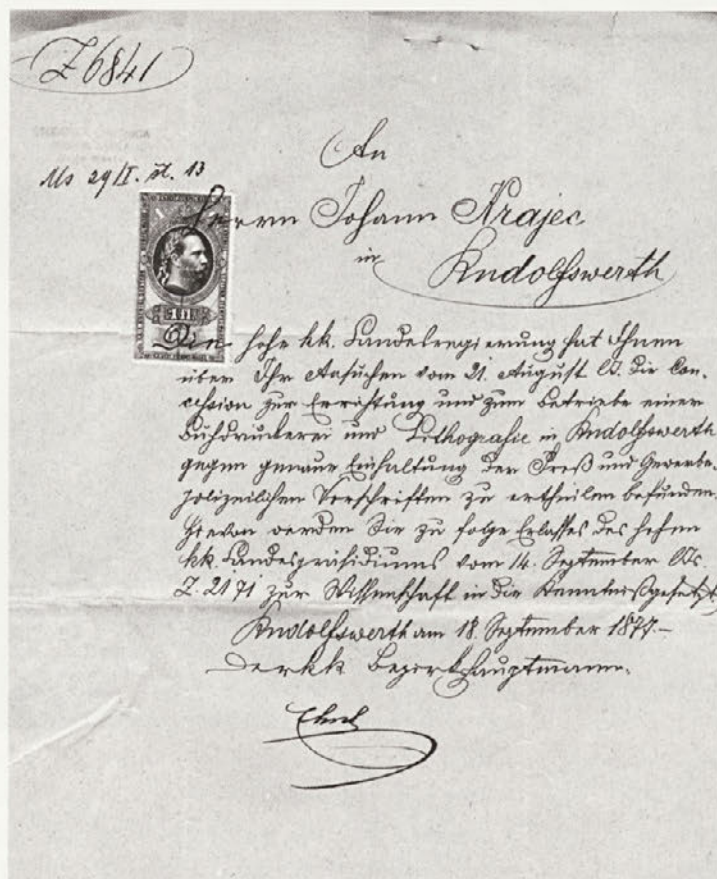 Z 6841
Ms 29/I. št. 13
An
Herrn Johann Krajec
in
Rudolfswerth
Die hohe kk. Landesregierung hat Ihnen
über Ihr Ansuchen vom 21. August l. J. die Con-
cession zur Errichtung und zum Betriebe einer
Buchdruckerei und Lithografie in Rudolfswerth
gegen genaue Einhaltung der Preß und Gewerbe-
polizeilichen Vorschriften zu ertheilen befunden.
Hievon werden Sie zu folge Erlasses des hohen
kk. Landespräsidiums vom 14. September l. Js.
Z. 2171 zur Wissenschaft in die Kenntniß gesetzt.
Rudolfswerth am 18. September 1877.–
Der kk Bezirkshauptmann.